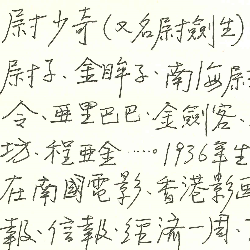 尉少奇(又名尉劍生
尉子、金眸子、南海尉
令、亜里巴巴、金劍客、
坊、程亜金……1936年生
在南國電影、香港影画
報、信報、經濟一周、